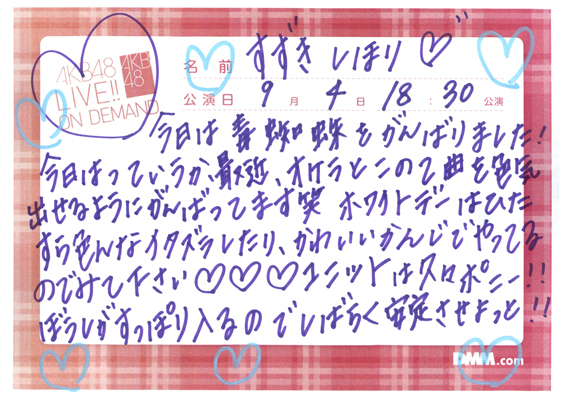 AKB48
LIVE!!
ON DEMAND
AKB
48
名前 すずき しほり
公演日 9月 4日 18:30公演
今日は毒蜘蛛をがんばりました!
今日はっていうか、最近、オケラとこの2曲を色気
出せるようにがんばってます笑 ホワイトデーはひた
すら色んなイタズラしたり、かわいいかんじでやってる
のでみて下さい♡♡♡ユニットはスロポニー!!
ぼうしがすっぽり入るのでしばらく安定させよっと!!
DMM.com